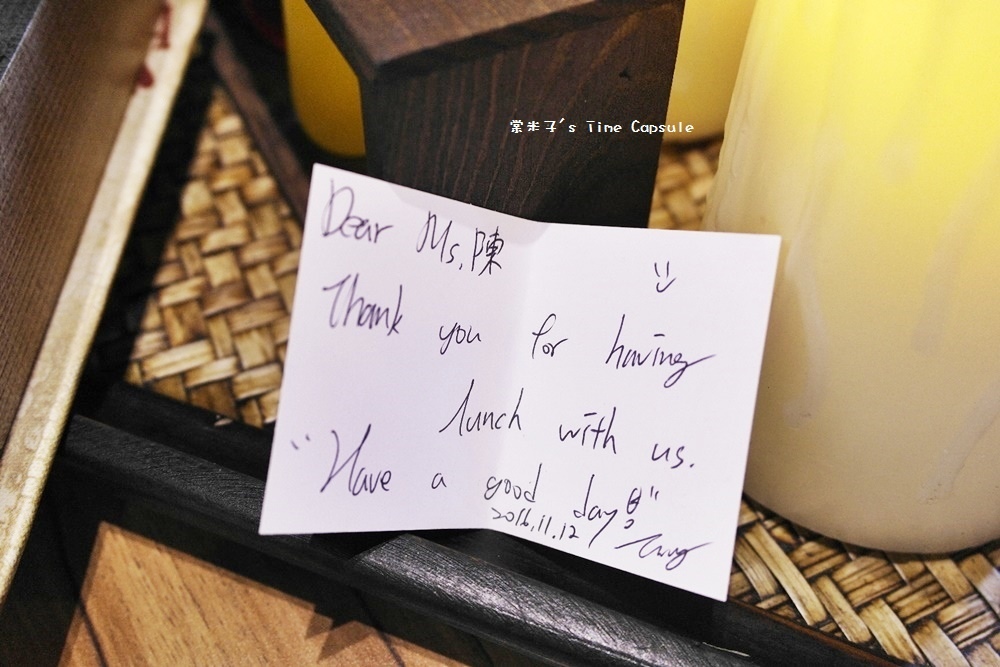 棠米子's Time Capsule
Dear Ms.陳
Thank you for having
lunch with us.
"Have a good day!"
2016.11.12